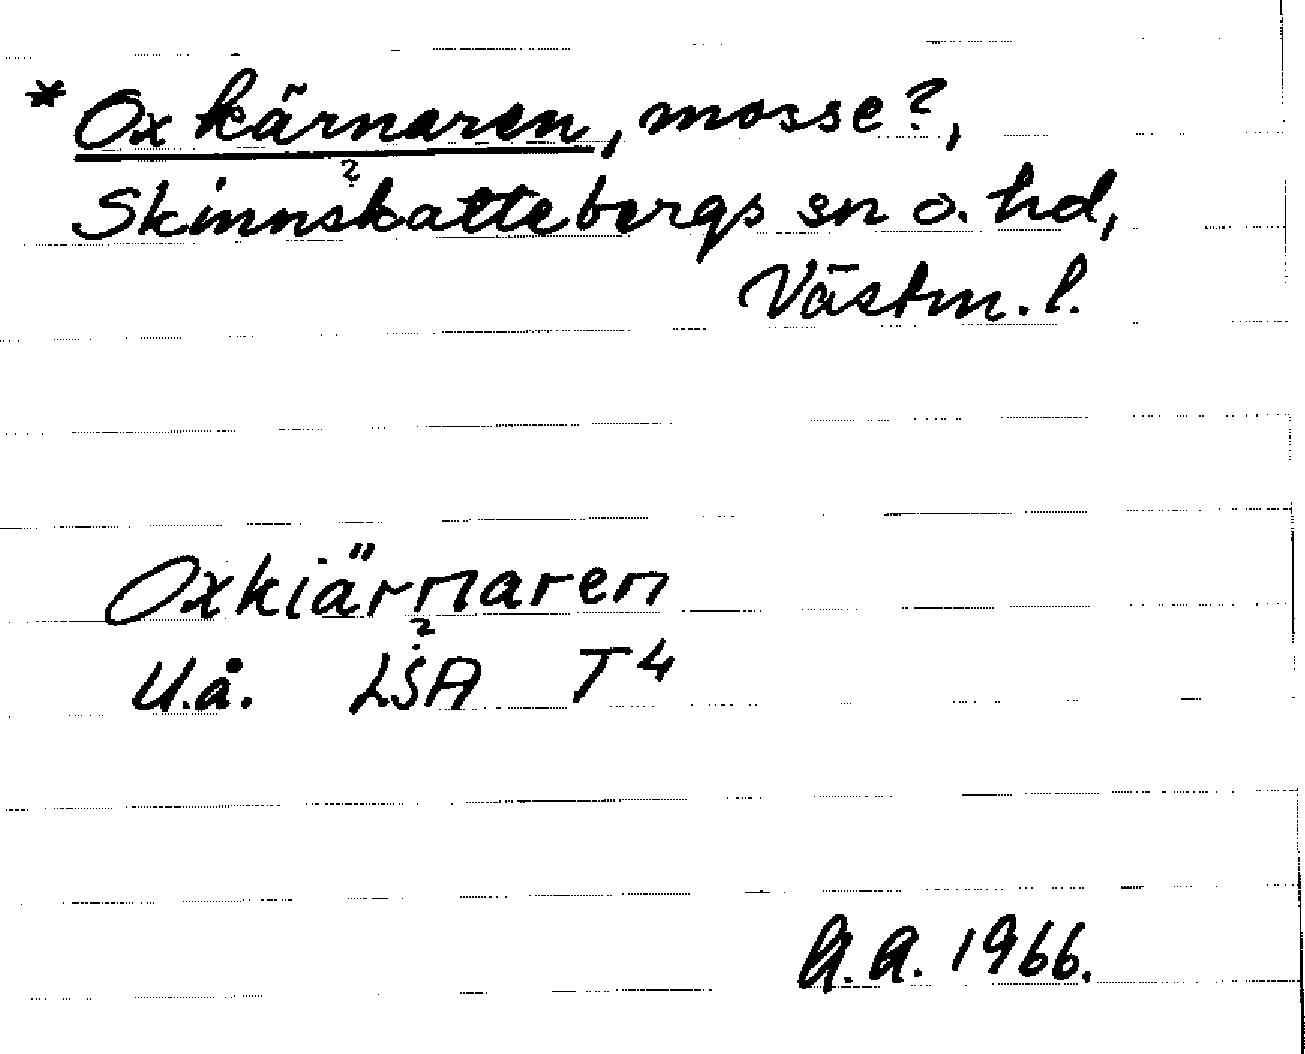 *Oxkärnaren, mosse?,
?
Skinnskattebergs sn o. hd,
Västm. l.
Oxkiärnaren
?
U.å. LSA T4
A.A. 1966.